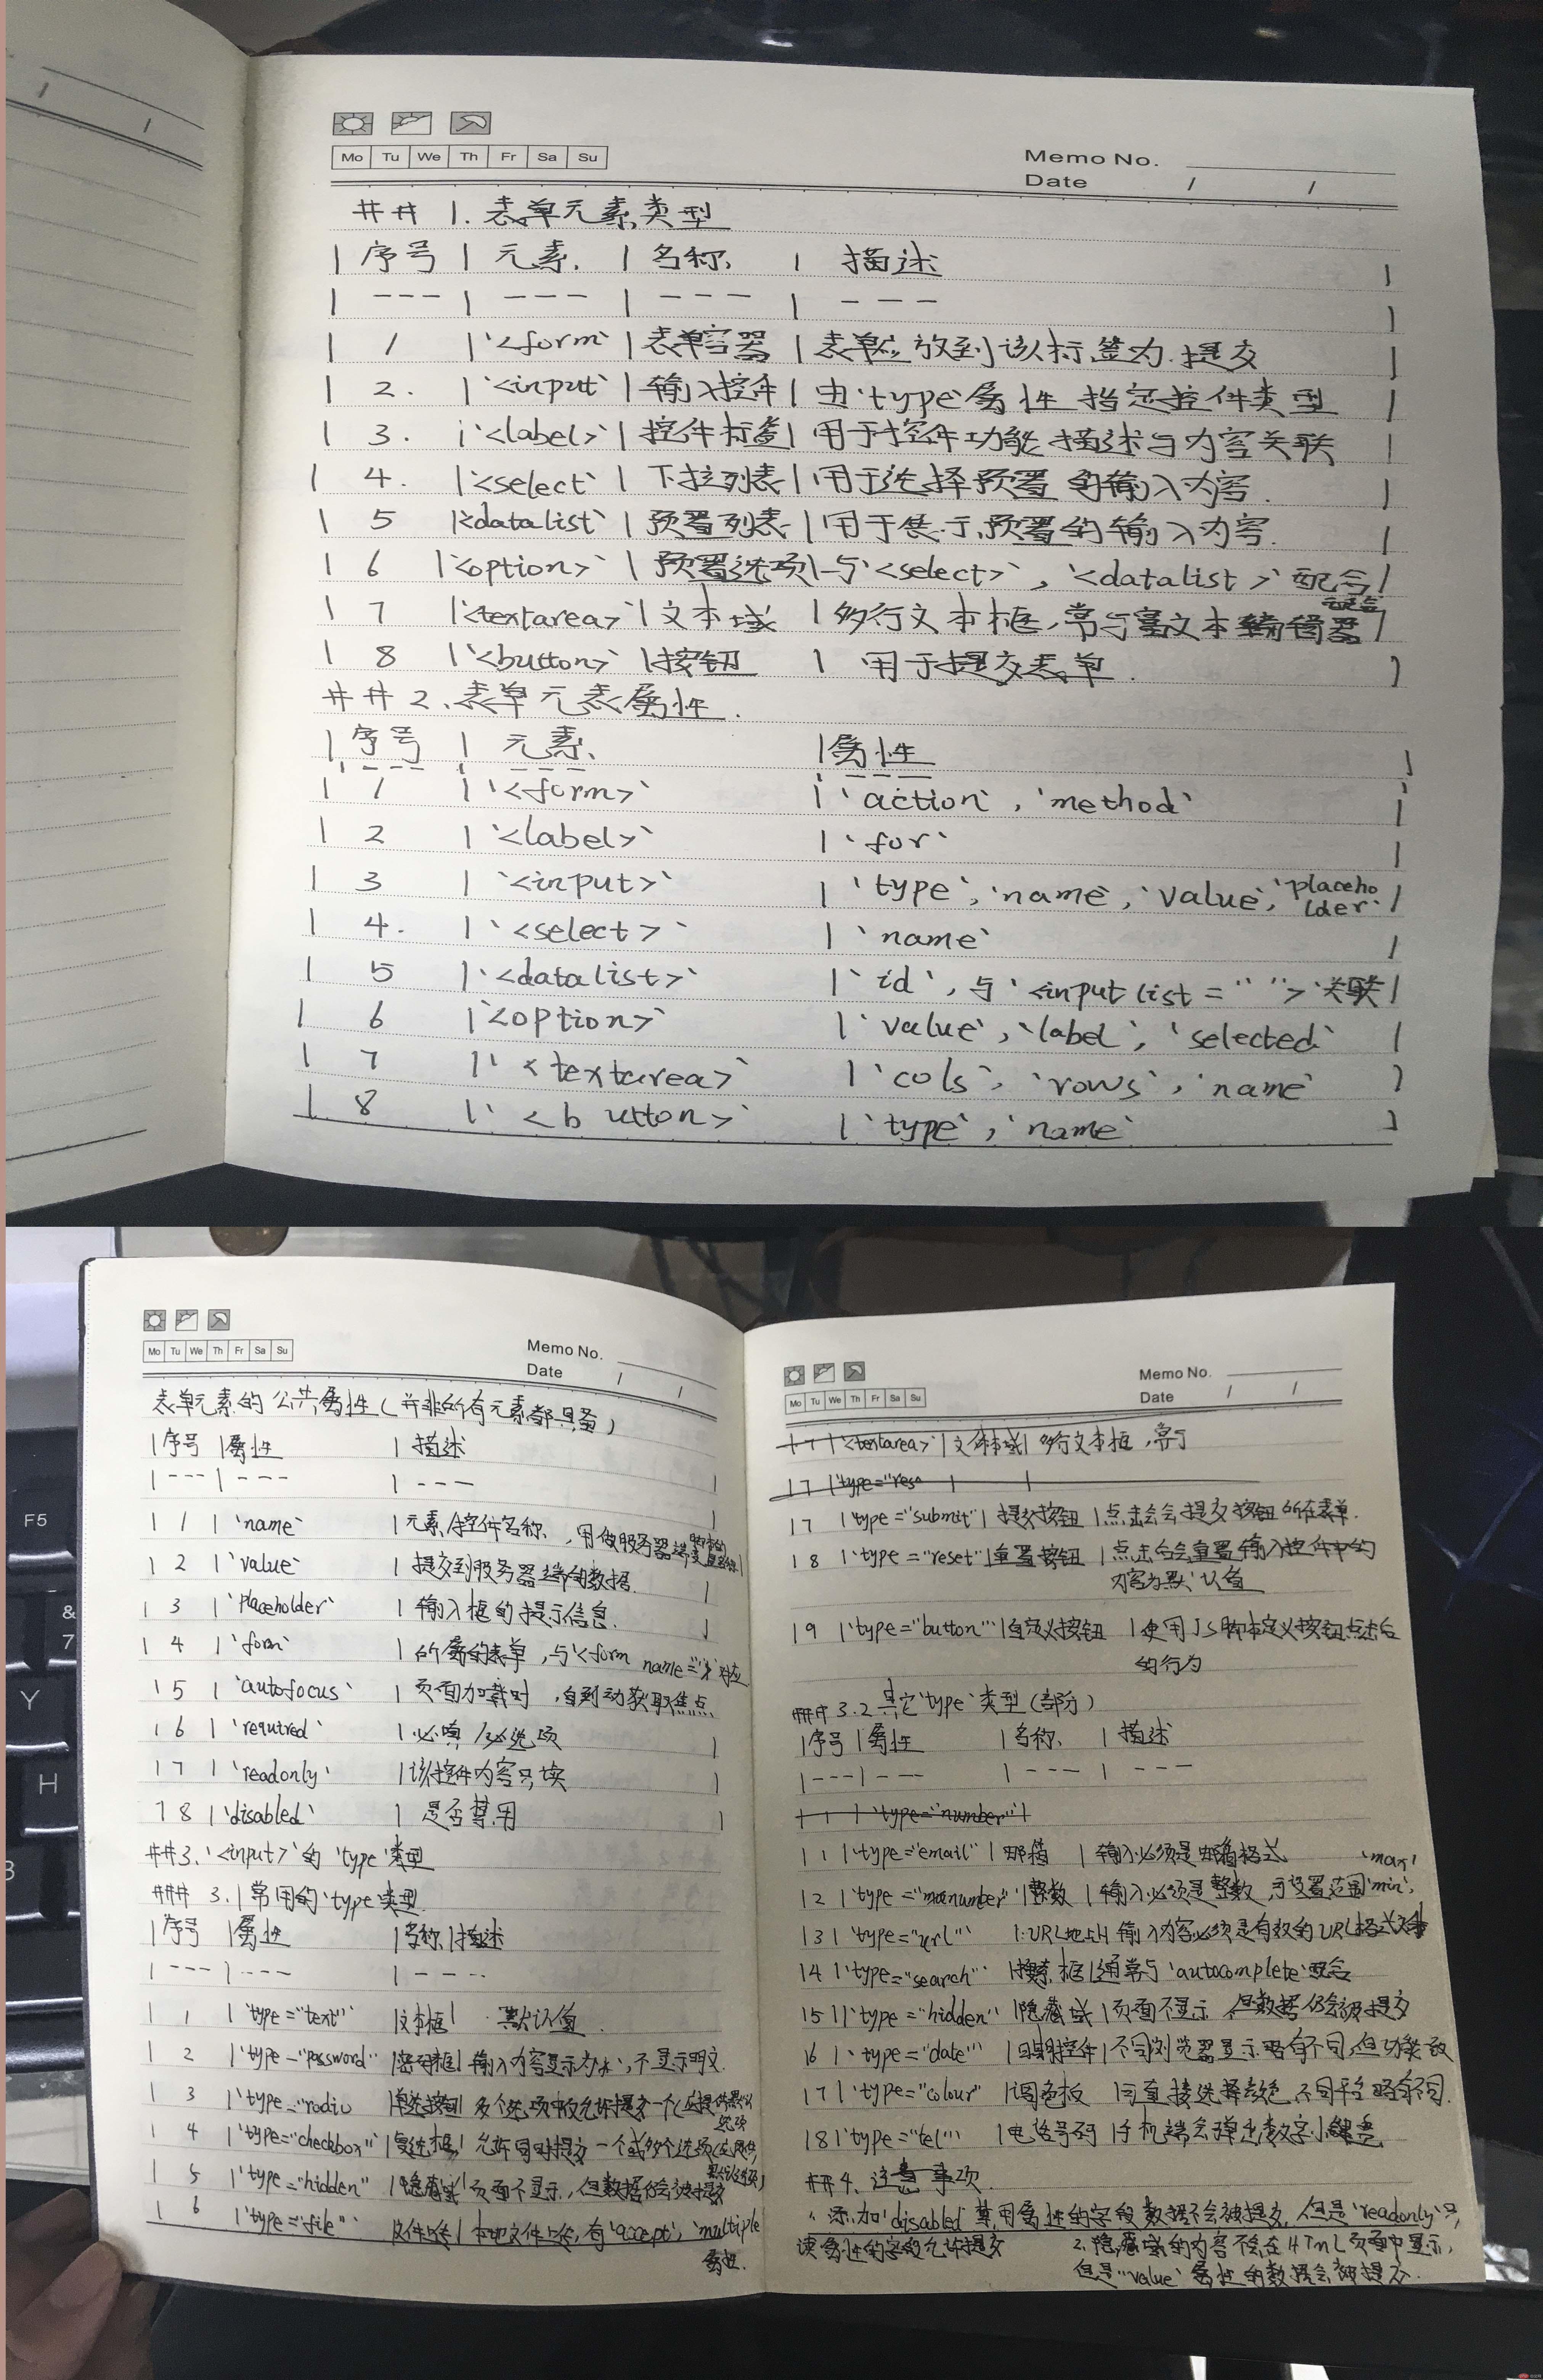 Mo Tu We Th Fr Sa Su
Memo No.
Date / /
## 1. 表单元素类型
| 序号 | 元素 | 名称 | 描述 |
| --- | --- | --- | --- |
| 1 | `<form` | 表单容器 | 表单 放到该标签内 提交 |
| 2. | `<input` | 输入控件 | 由`type`属性 指定控件类型 |
| 3. | `<label>` | 控件标签 | 用于控件功能 描述与内容关联 |
| 4. | `<select` | 下拉列表 | 用于选择预置的输入内容. |
| 5 | `<datalist` | 预置列表 | 用于展示预置的输入内容. |
| 6 | `<option>` | 预置选项 | 与`<select>`, `<datalist>`配合 |
| 7 | `<textarea>` | 文本域 | 多行文本框, 常与富文本编辑器配合 |
| 8 | `<button>` | 按钮 | 用于提交表单. |
## 2. 表单元素属性.
| 序号 | 元素 | 属性 |
| --- | --- | --- |
| 1 | `<form>` | `action`, `method` |
| 2 | `<label>` | `for` |
| 3 | `<input>` | `type`, `name`, `value`, `placeholder` |
| 4. | `<select>` | `name` |
| 5 | `<datalist>` | `id`, 与`<input list=" ">`关联 |
| 6 | `<option>` | `value`, `label`, `selected` |
| 7 | `<textarea>` | `cols`, `rows`, `name` |
| 8 | `<button>` | `type`, `name` |
Mo Tu We Th Fr Sa Su
Memo No.
Date / /
表单元素的公共属性(并非所有元素都具备)
| 序号 | 属性 | 描述
| --- | --- | --- |
| 1 | `name` | 元素/控件名称, 用做服务器端脚本的变量名称 |
| 2 | `value` | 提交到服务器端的数据. |
| 3 | `placeholder` | 输入框的提示信息. |
| 4 | `form` | 所属的表单, 与`<form name="">`对应
| 5 | `autofocus` | 页面加载时, 自动获取焦点
| 6 | `required` | 必填/必选项 |
| 7 | `readonly` | 该控件内容只读 |
| 8 | `disabled` | 是否禁用 |
## 3. `<input>`的`type`类型
### 3.1 常用的`type`类型
| 序号 | 属性 | 名称 | 描述
| --- | --- | ---
| 1 | `type="text"` | 文本框 | 默认值.
| 2 | `type="password" | 密码框 | 输入内容显示为`*`, 不显示明文.
| 3 | `type="radio | 单选按钮 | 多个选项中仅允许提交一个 默认选项
| 4 | `type="checkbox"` | 复选框 | 允许同时提交一个或多个选项
| 5 | `type="hidden" | 隐藏域 | 页面不显示, 但数据仍会被提交
| 6 | `type="file"` | 文件上传 | 本地文件上传, 有`accept`, `multiple 属性.
Mo Tu We Th Fr Sa Su
Memo No.
Date / /
| 7 | `<textarea>` | 文本域 | 多行文本框, 常与
| 7 | `type="rese | |
| 7 | `type="submit" | 提交按钮 | 点击会会提交按钮所在表单.
| 8 | `type="reset" | 重置按钮 | 点击后会重置输入控件中的
内容为默认值
| 9 | `type="button"` | 自定义按钮 | 使用JS脚本定义按钮点击后
的行为
### 3.2 其它`type`类型(部分)
| 序号 | 属性 | 名称 | 描述
| --- | --- | --- | ---
| 1 | `type="number"` |
| 1 | `type="email" | 邮箱 | 输入必须是邮箱格式
| 2 | 整数 | 输入必须是整数, 可设置范围`min`, `max`
| 3 | `type="url"` | URL地址 | 输入内容必须是有效的URL格式
| 4 | `type="search"` | 搜索框 | 通常与`autocomplete`配合
| 5 | `type="hidden" | 隐藏域 | 页面不显示 但数据仍会被提交
| 6 | `type="date"` | 日期控件 | 不同浏览器显示略有不同, 但功能一致
| 7 | `type="colour" | 调色板 | 可直接选择颜色, 不同平台略有不同.
| 8 | `type="tel"` | 电话号码 | 手机端会弹出数字小键盘
## 4. 注意事项
1. 添加`disabled`禁用属性的字段数据不会被提交, 但是`readonly`只
读属性的字段允许提交
2. 隐藏域的内容不会在HTML页面中显示,
但是`value`属性的数据会被提交.
F5
&
7
Y
H